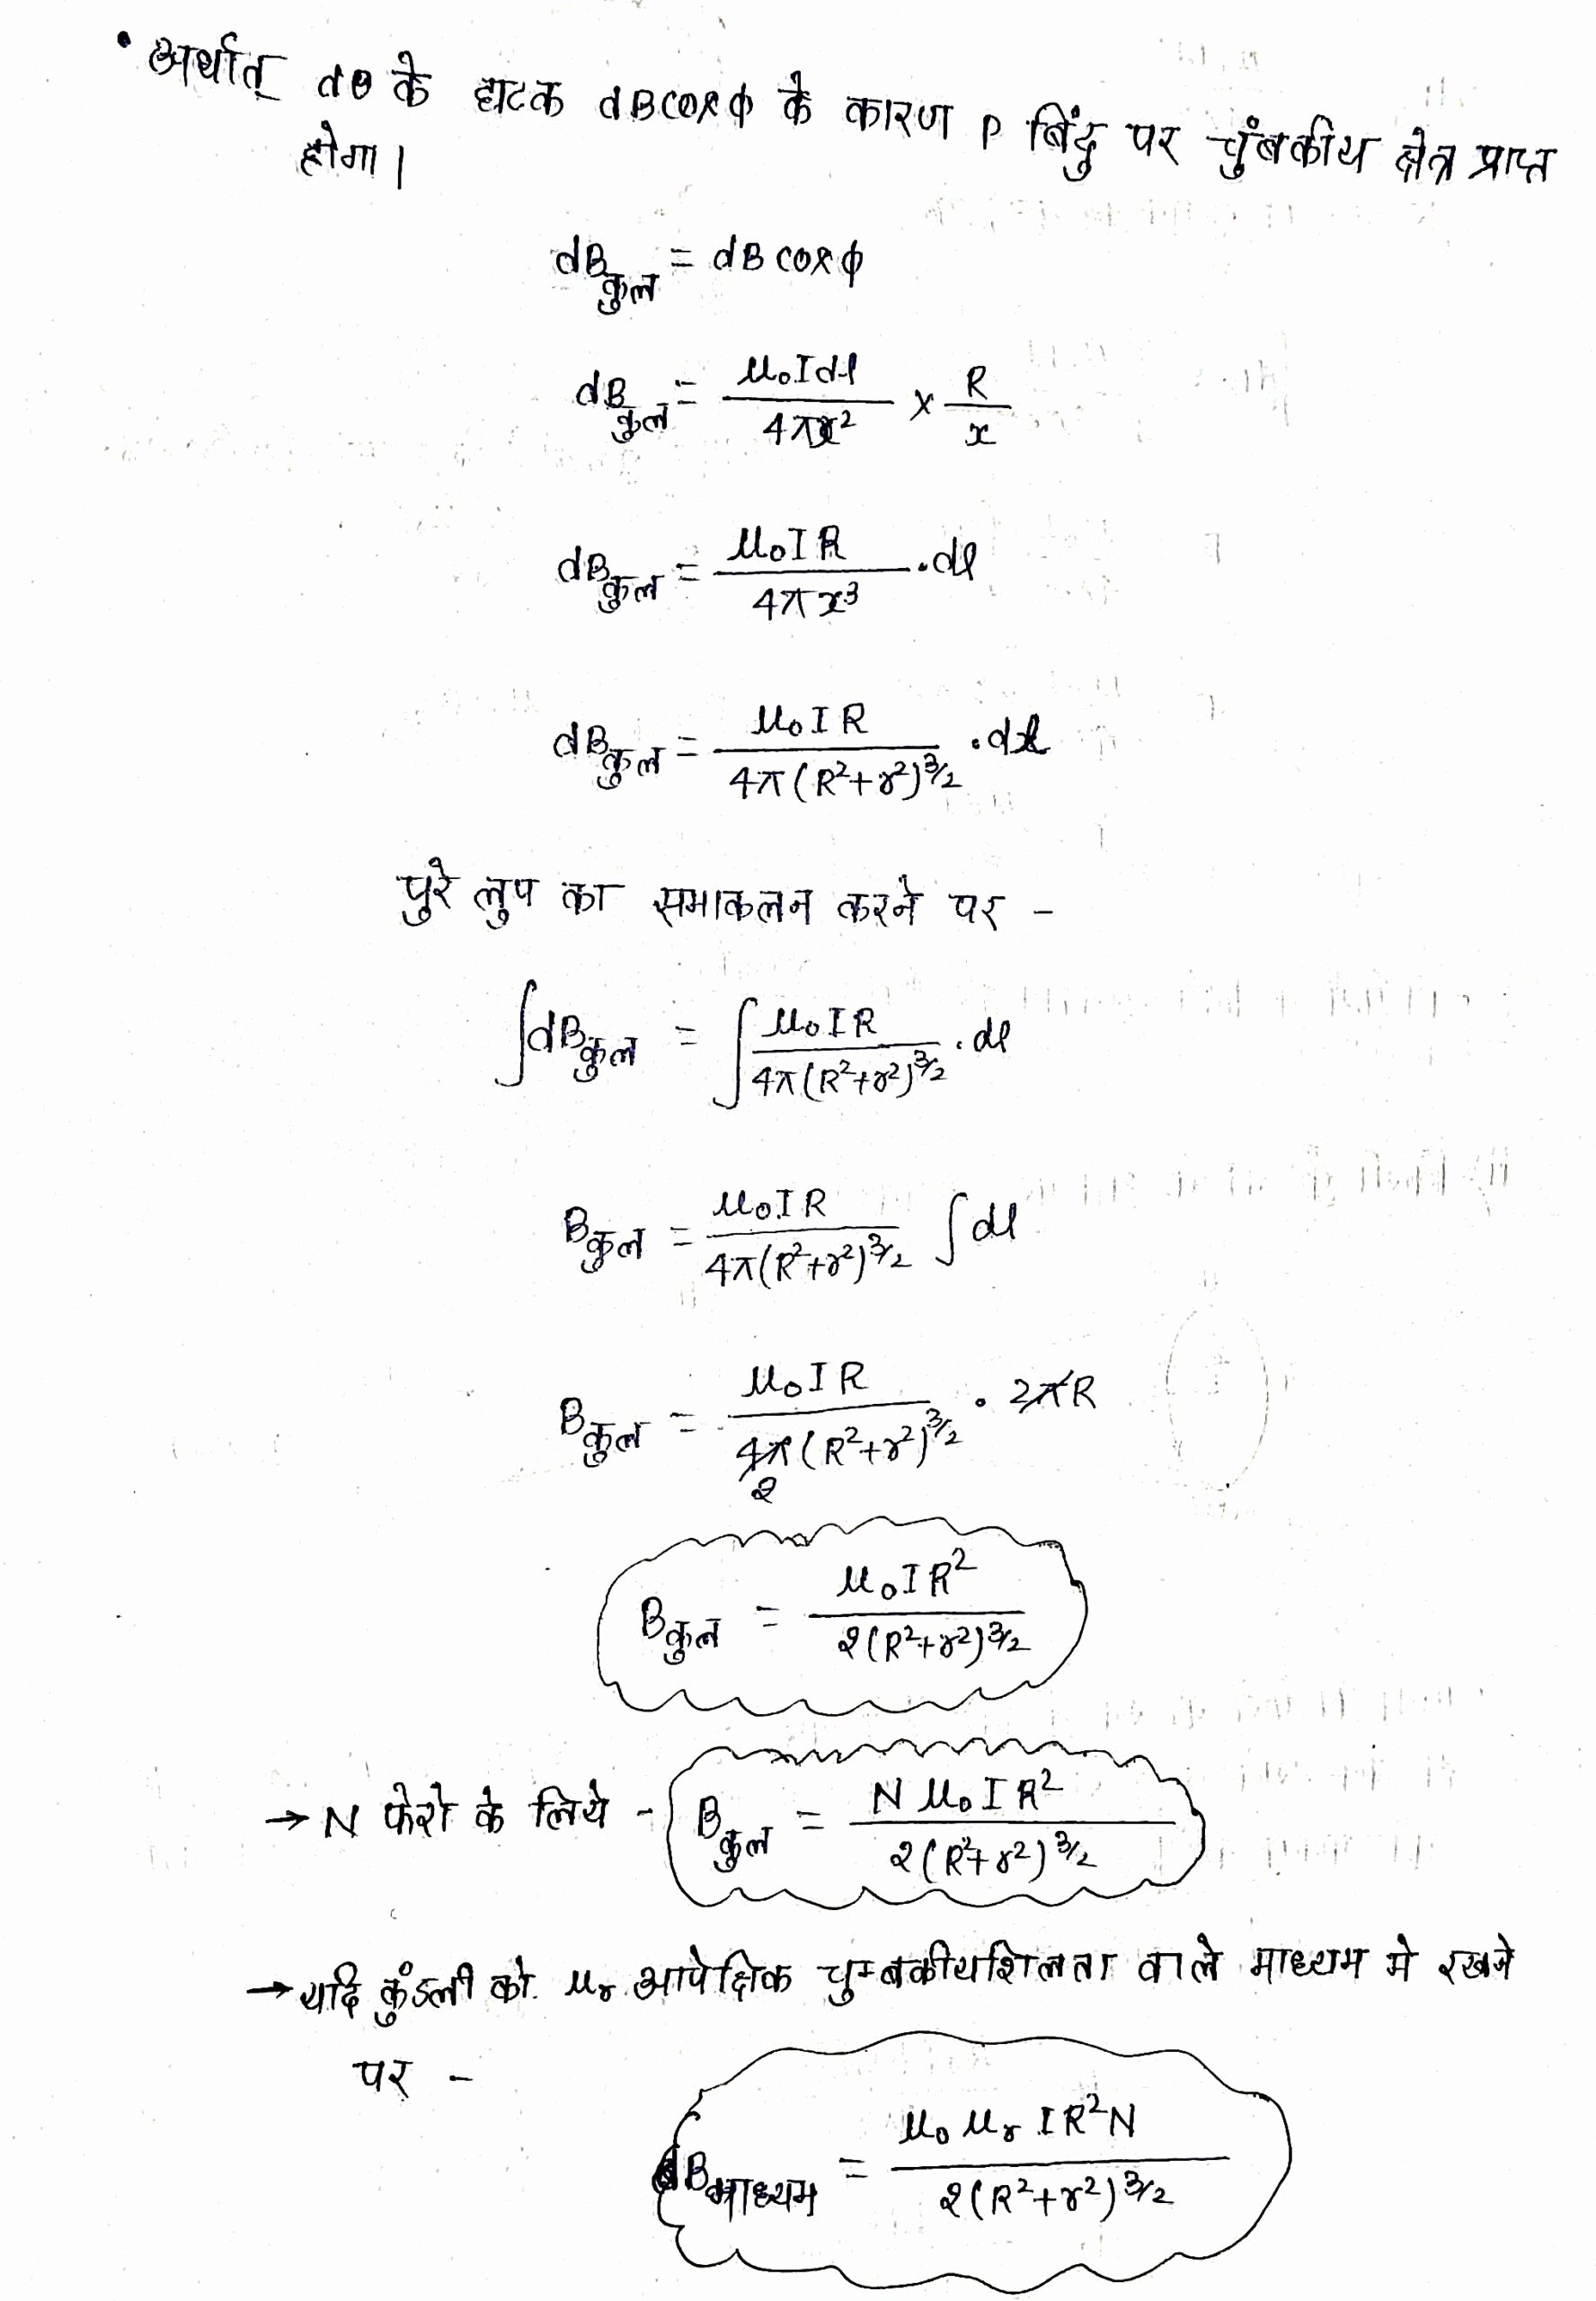 • अर्थात् dB के घटक dBcosφ के कारण P बिंदु पर चुंबकीय क्षेत्र प्राप्त
होगा।
dBकुल = dB cosφ
dBकुल = μ₀Idl / 4πx² × R / x
dBकुल = μ₀IR / 4πx³ . dl
dBकुल = μ₀IR / 4π(R²+r²)^3/2 . dl
पुरे लुप का समाकलन करने पर -
∫dBकुल = ∫ μ₀IR / 4π(R²+r²)^3/2 . dl
Bकुल = μ₀IR / 4π(R²+r²)^3/2 ∫dl
Bकुल = μ₀IR / 4π(R²+r²)^3/2 . 2πR
2
Bकुल = μ₀IR² / 2(R²+r²)^3/2
→ N फेरो के लिये - Bकुल = Nμ₀IR² / 2(R²+r²)^3/2
→ यदि कुंडली को μr आपेक्षिक चुम्बकीयशिलता वाले माध्यम मे रखने
पर -
Bमाध्यम = μ₀μr IR²N / 2(R²+r²)^3/2